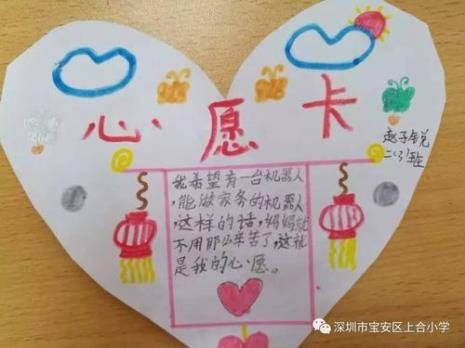 心愿卡
赵子锐
二(3)班
我希望有一台机器人
,能做家务的机器人
,这样的话,妈妈就
不用那么辛苦了,这就
是我的心愿。
深圳市宝安区上合小学